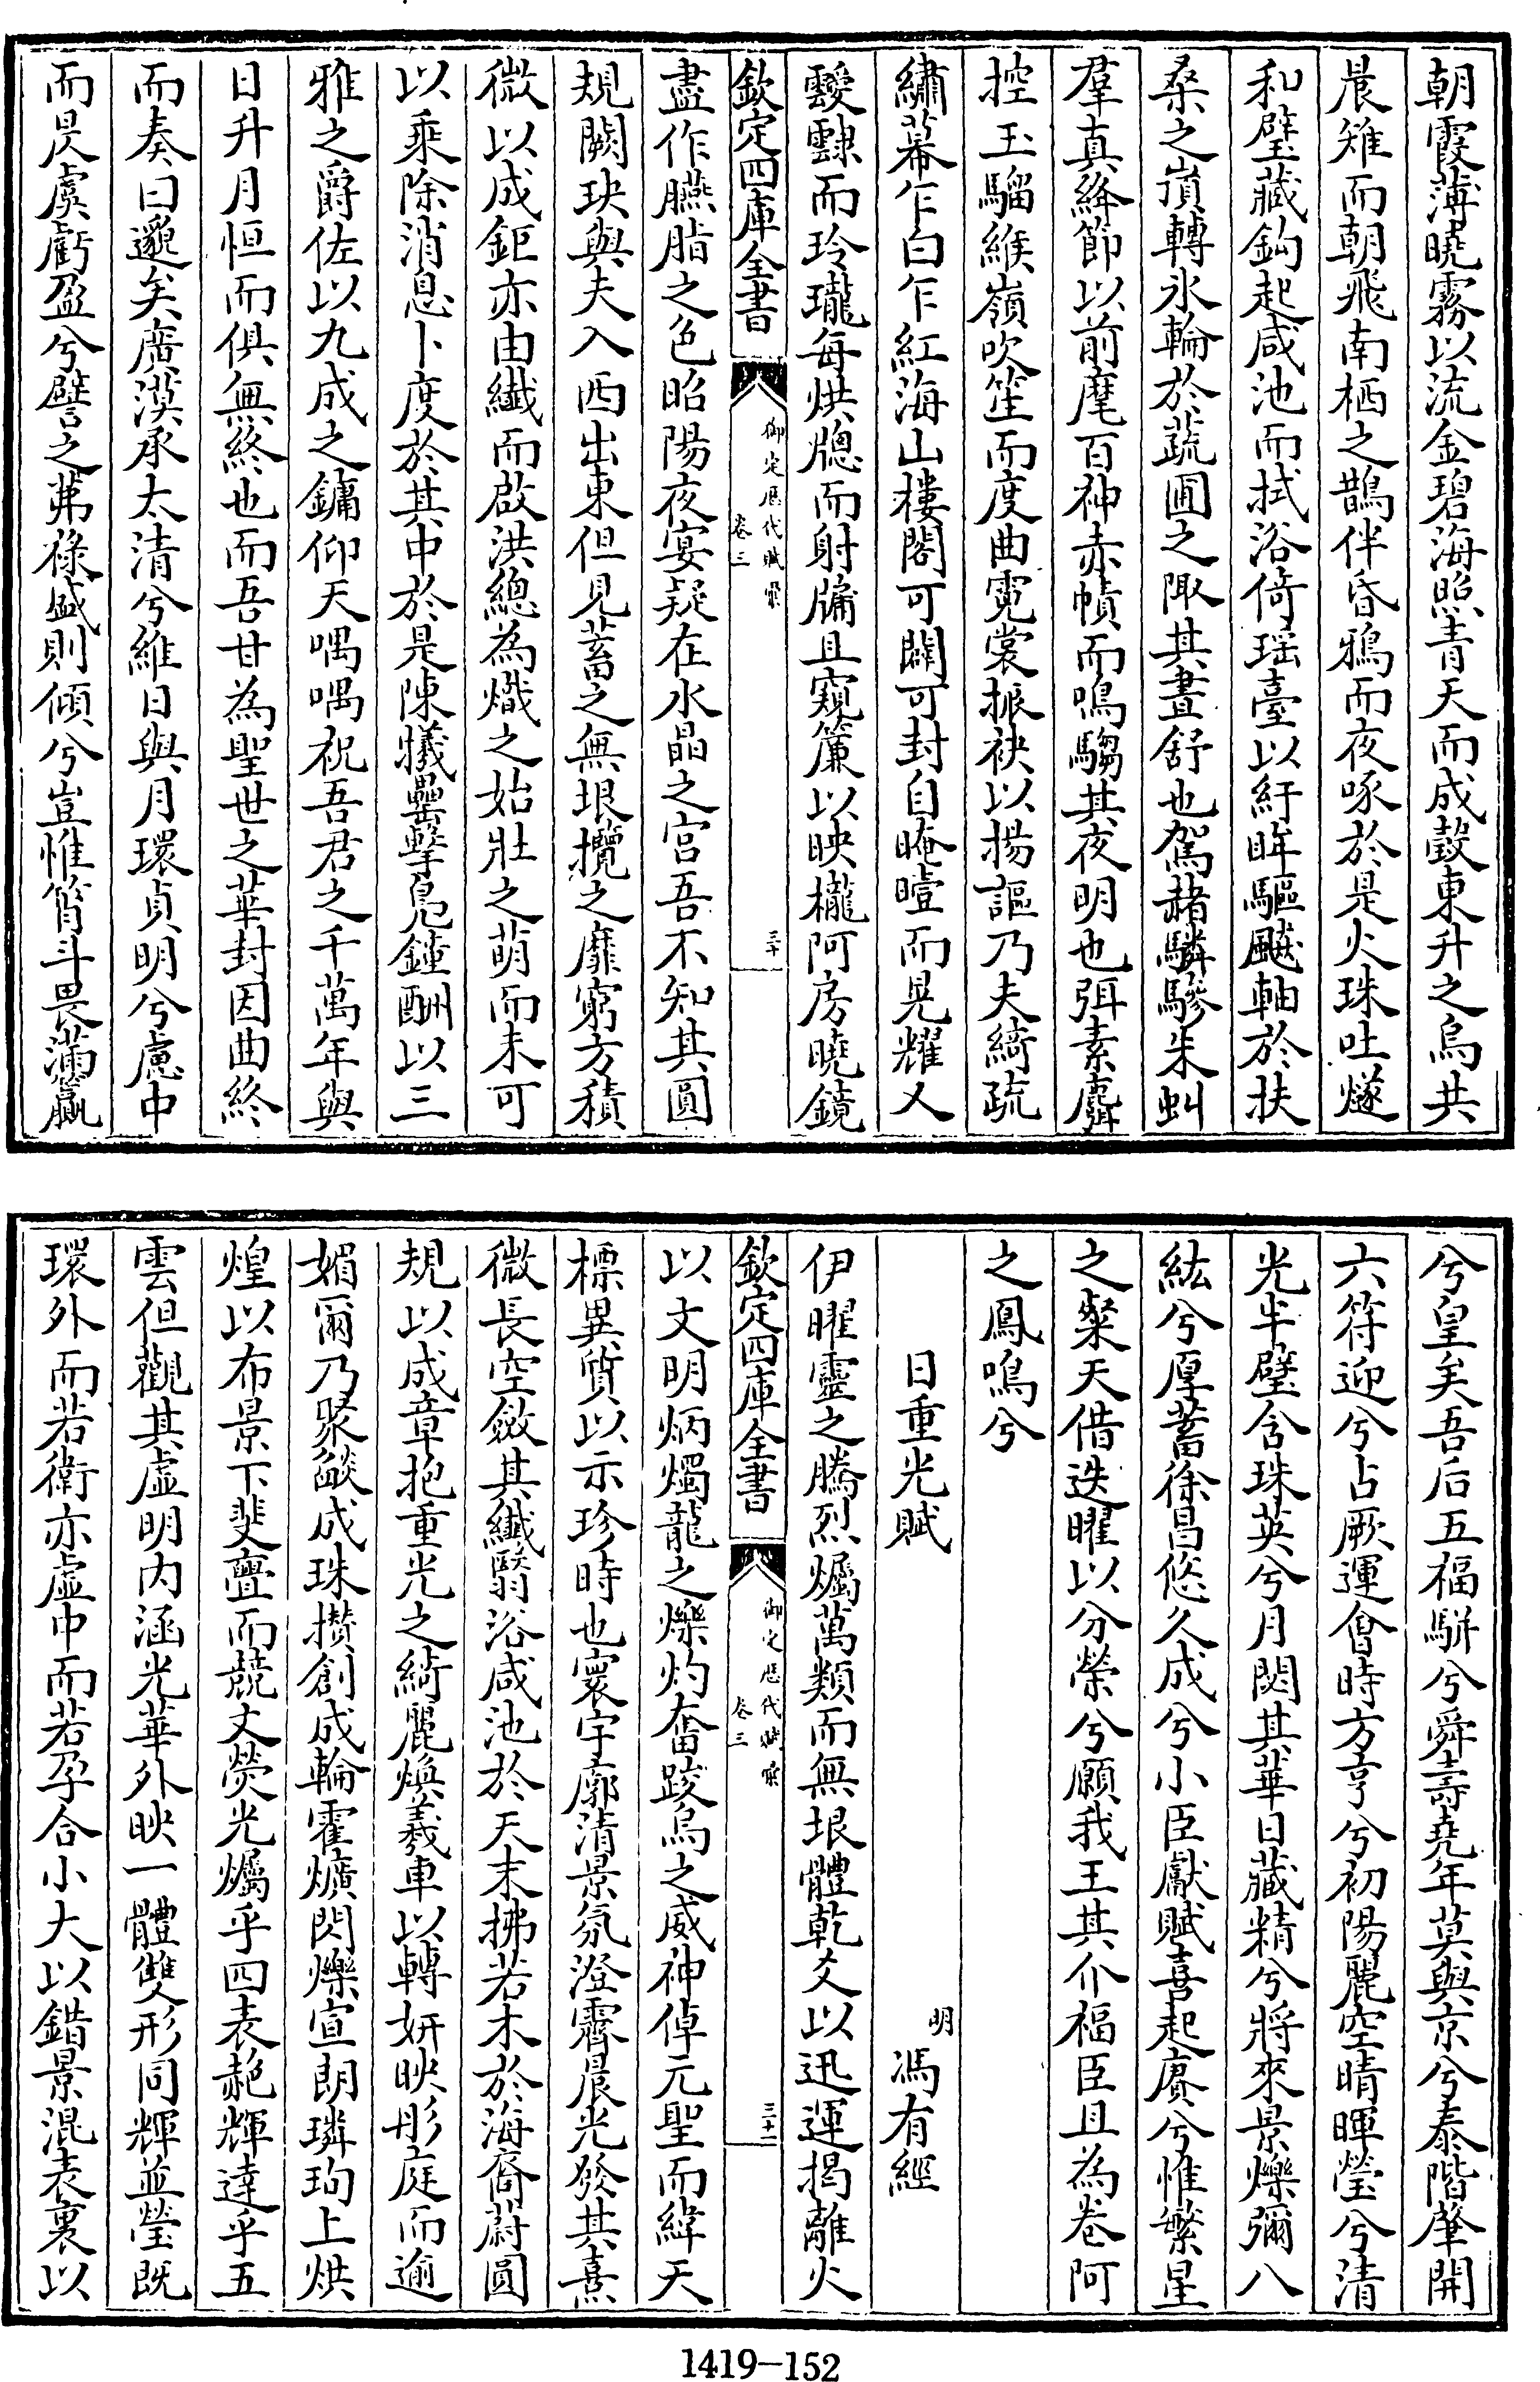 朝霞薄曉霧以流金碧海照青天而成彀東升之烏共
晨雉而朝飛南栖之鵲伴昏鴉而夜啄於是火珠吐燧
和璧藏鈎起咸池而拭浴倚瑶臺以紆眸驅飈軸於扶
桑之巔轉氷輪於蔬圃之陬其晝舒也駕赭驎驂朱虬
羣真絳節以前麾百神赤幘而鳴騶其夜明也弭素麐
控玉騮緱嶺吹笙而度曲霓裳振袂以揚謳乃夫綺疏
繡幕乍白乍紅海山樓閣可闢可封自晻曀而晃耀又
靉靆而玲瓏每烘牕而射牖且窺簾以映櫳阿房曉鏡
欽定四庫全書
御定歷代賦彙
卷三
三十
盡作臙脂之色昭陽夜宴疑在水晶之宫吾不知其圓
規闕玦與夫入西出東但見蓄之無垠攬之靡窮方積
微以成鉅亦由纖而啟洪總為熾之始壯之萌而未可
以乘除消息卜度於其中於是陳犧罍擊鳬鐘酬以三
雅之爵佐以九成之鏞仰天喁喁祝吾君之千萬年與
日升月恒而俱無終也而吾甘為聖世之華封因曲終
而奏曰邈矣廣漠承太清兮維日與月環貞明兮慮中
而昃虞虧盈兮譬之茀祿盛則傾兮豈惟筲斗畏滿籯
兮皇矣吾后五福駢兮舜壽堯年莫與京兮泰階肇開
六符迎兮占厥運會時方亨兮初陽麗空晴暉瑩兮清
光半璧含珠英兮月閟其華日藏精兮將來景爍彌八
紘兮厚蓄徐昌悠久成兮小臣獻賦喜起賡兮惟繁星
之粲天借迭曜以分榮兮願我王其介福臣且為卷阿
之鳳鳴兮
日重光賦
明
馮有經
伊曜靈之騰烈爥萬類而無垠體乾爻以迅運揭離火
欽定四庫全書
御定歷代賦彙
卷三
三十一
以文明炳燭龍之爍灼奮踆烏之威神倬元聖而緯天
標異質以示珍時也寰宇廓清景氛澄霽晨光發其熹
微長空斂其纖翳浴咸池於天末拂若木於海裔蔚圓
規以成章抱重光之綺麗煥羲車以轉妍映彤庭而逾
媚爾乃聚燄成珠攢創成輪霍爌閃爍宣朗璘玽上烘
煌以布景下斐亹而競文熒光爥乎四表赩輝達乎五
雲但觀其虛明内涵光華外映一體雙形同輝並瑩既
環外而若衛亦虛中而若孕合小大以錯景混表裏以
1419-152